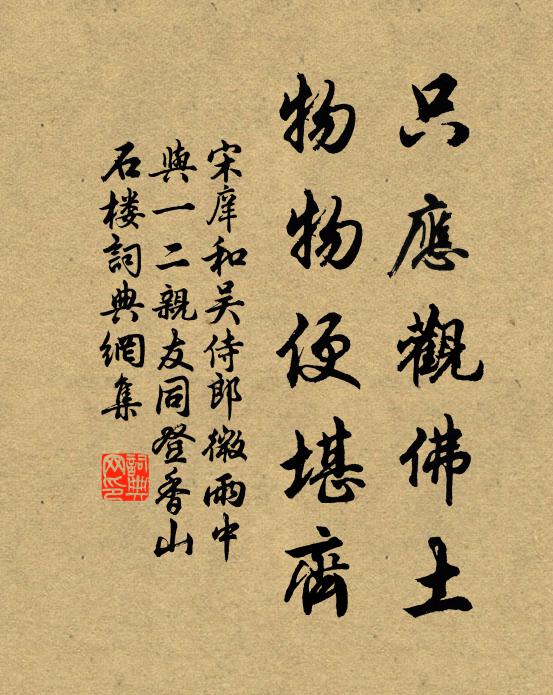 只應觀佛土
物物便堪齊
宋庠和吴侍郎微雨中
與一二親友同登香山
石楼詞典網集
詞典
网印